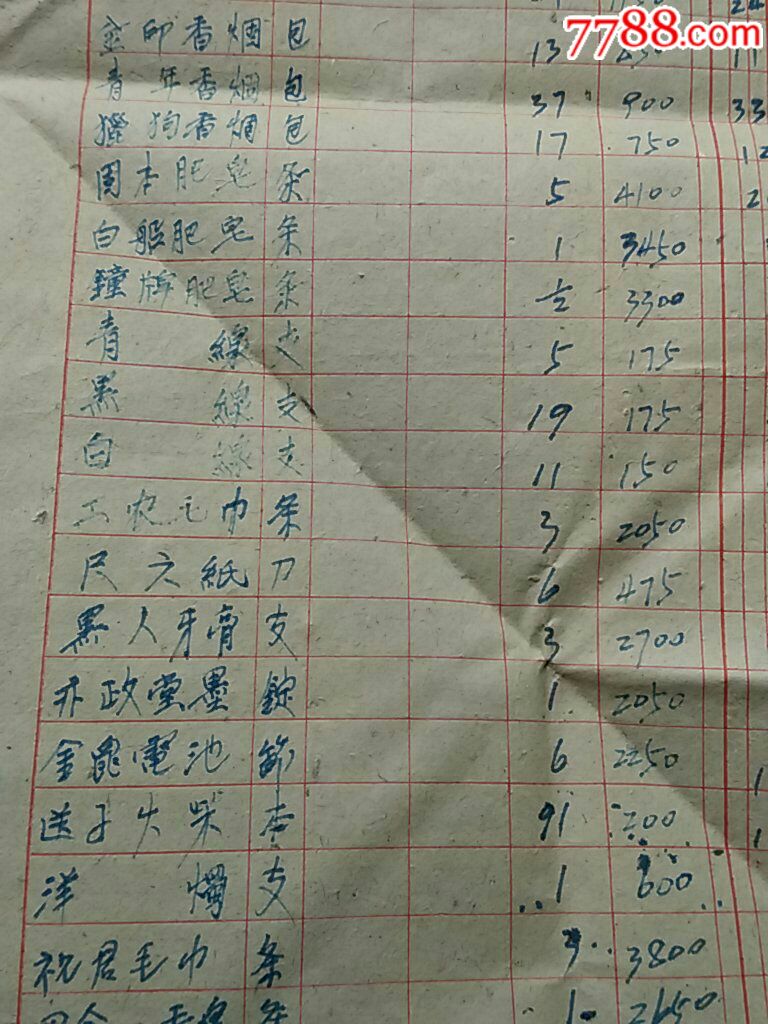 7788.com
金印香烟 包 13
青年香烟 包 37 900 33
獵狗香烟 包 17 750 12
固本肥皂 条 5 4100
白船肥皂 条 1 3450
鐘牌肥皂 条 ½ 3300
青線 支 5 175
黑線 支 19 175
白線 支 11 150
工农毛巾 条 3 2050
尺六紙 刀 6 475
黑人牙膏 支 3 2700
亦政堂墨 錠 1 2050
金龍電池 節 6 2250
送子火柴 91 200
洋燭 支 1 600
祝君毛巾 条 3 3800
1 2650